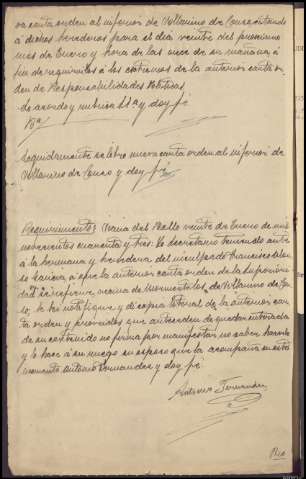 va carta orden al inferior de Villamino de Conso citando
a dichos herederos para el día veinte del proximo
mes de Enero y hora de las once de su mañana a
fin de requerirlos a los extremos de la anterior carta or
den de Responsabilidades Políticas
lo acordó y rubrica S.Sª y doy fé
Seguidamente se libra nueva carta orden al inferior de
Villarino de Conso y doy fé
Requerimiento: Viana del Bollo veinte de Enero de mil
novecientos cuarenta y tres. Yo Secretario teniendo ante
mi a la hermana y heredera del inculpado Francisco
a que la anterior carta orden de la Superiori
dad se refiere, vecina de de Villarino de Con
so, la notifiqué y di copia literal de la anterior car
ta orden y proveidos que anteceden de quedar enterada
de su contenido no firma por manifestar no saber hacerlo
y lo hace a su ruego su esposo que la acompaña en este
momento Antonio Fernandez y doy fé.
Antonio Fernandez